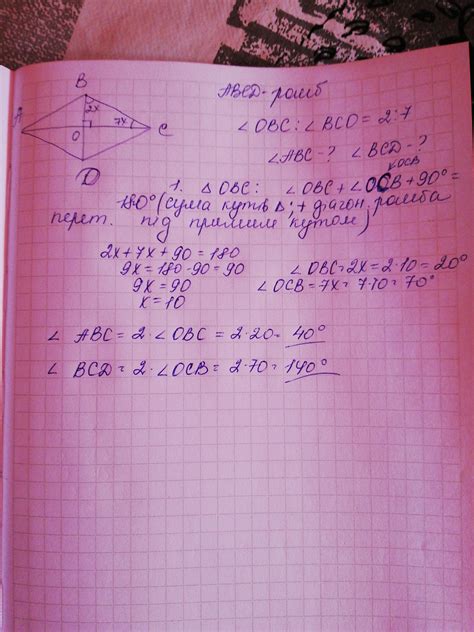 B
2x
A
7x
O
C
D
ABCD - ромб
∠OBC : ∠BCO = 2:7
∠ABC - ? ∠BCD - ?
∠OCB
1. △OBC: ∠OBC + ∠OCB + 90° =
180° (сума кутів △; + діагон. ромба
перет. під прямим кутом)
2x + 7x + 90 = 180
9x = 180 - 90 = 90
9x = 90
x = 10
∠OBC = 2x = 2·10 = 20°
∠OCB = 7x = 7·10 = 70°
∠ ABC = 2·∠OBC = 2·20 = 40°
∠ BCD = 2·∠OCB = 2·70 = 140°